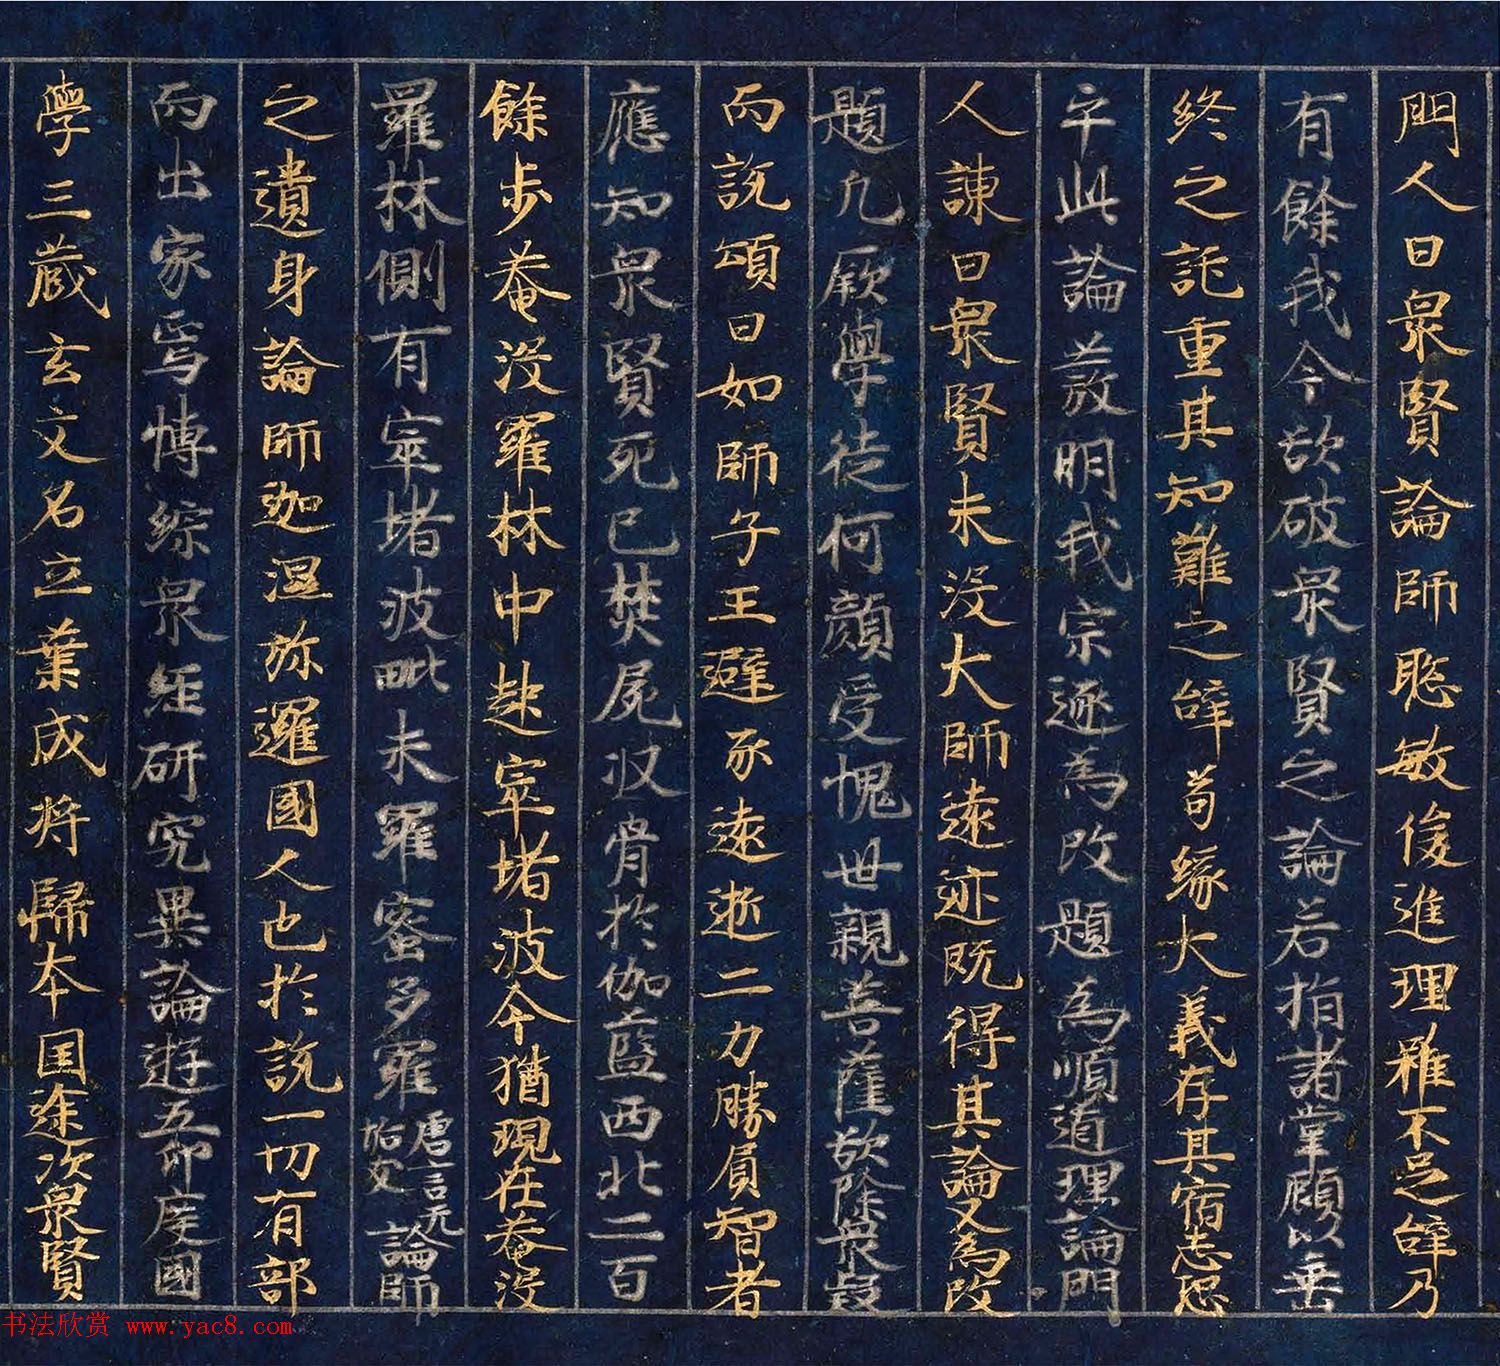 門人曰眾賢論師聰敏後進理雖不足辭乃
有餘我今欲破眾賢之論若指諸掌顧以垂
終之託重其知難之辭苟緣大義存其宿志況
乎此論發明我宗遂為改題為順道理論門
人諫曰眾賢未沒大師遠迹既得其論又為改
題凡厥學徒何顏受愧世親菩薩欲除眾疑
而說頌曰如師子王避豕遠逝二力勝負智者
應知眾賢死已焚屍收骨於伽藍西北二百
餘步菴沒羅林中起窣堵波今猶現在菴沒
羅林側有窣堵波毗末羅蜜多羅唐言无垢友論師
之遺身論師迦濕弥邏國人也於說一切有部
而出家焉博綜眾經研究異論遊五印度國
學三藏玄文名立業成將歸本国途次眾賢
书法欣赏 www.yac8.com